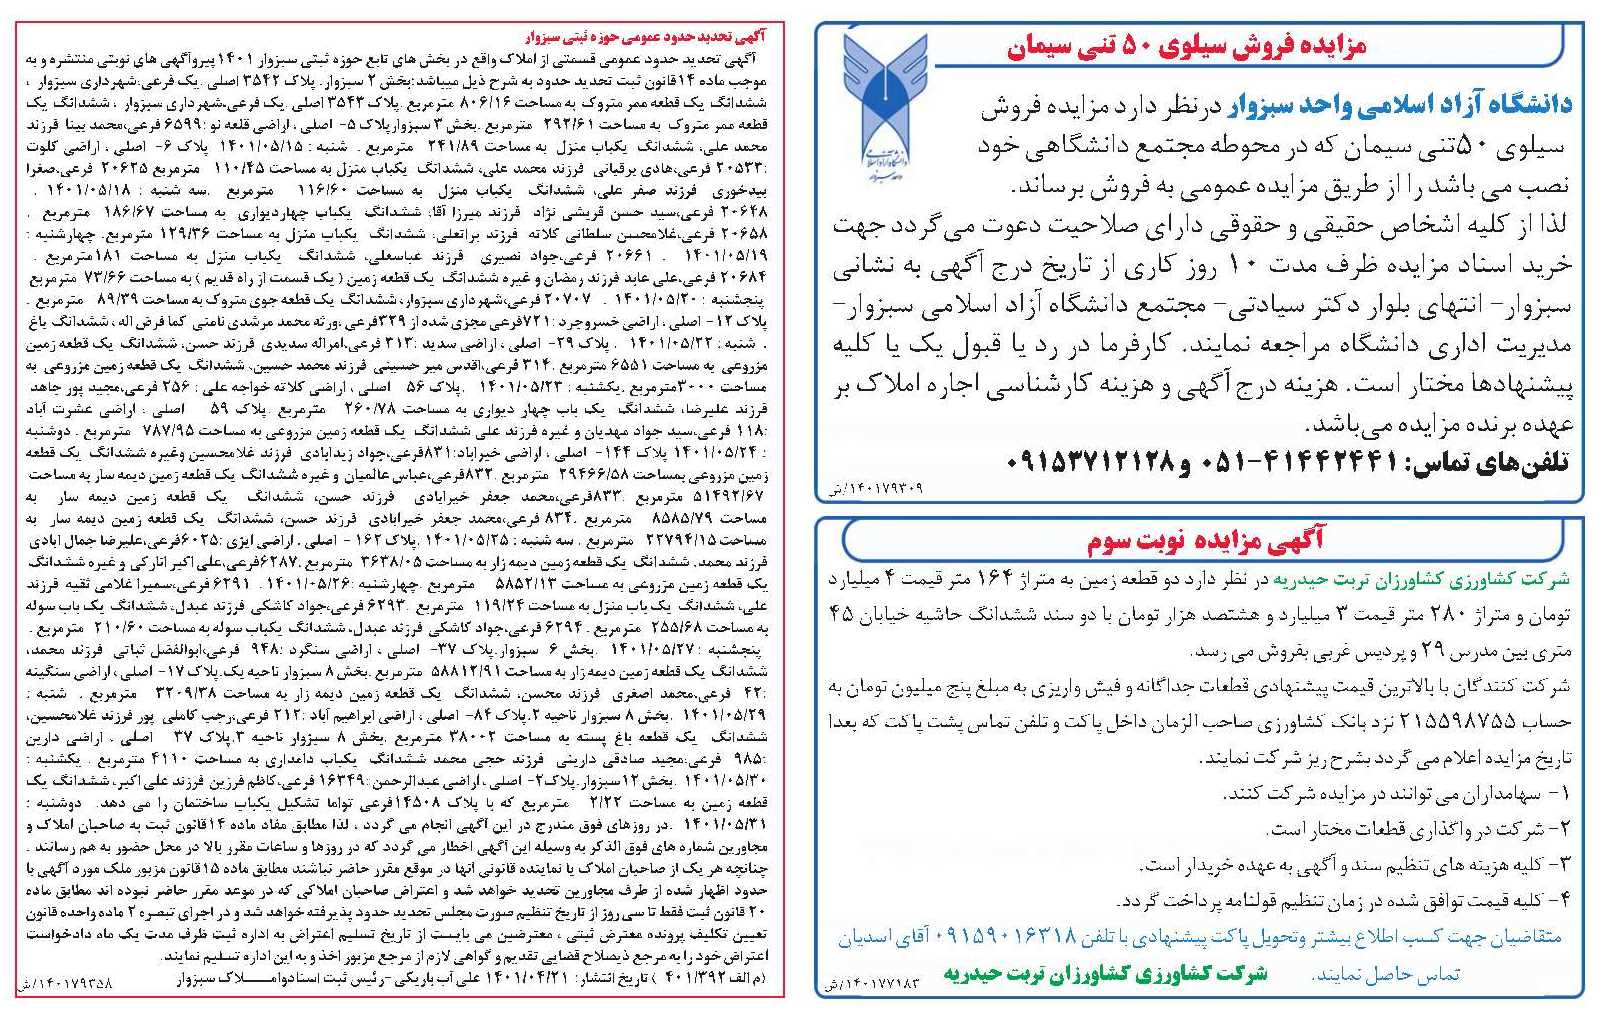 مزایده فروش سیلوی ۵۰ تنی سیمان
دانشگاه آزاد اسلامی واحد سبزوار
دانشگاه آزاد اسلامی واحد سبزوار درنظر دارد مزایده فروش
سیلوی ۵۰تنی سیمان که در محوطه مجتمع دانشگاهی خود
نصب می باشد را از طریق مزایده عمومی به فروش برساند.
لذا از کلیه اشخاص حقیقی و حقوقی دارای صلاحیت دعوت می‌گردد جهت
خرید اسناد مزایده ظرف مدت ۱۰ روز کاری از تاریخ درج آگهی به نشانی
سبزوار- انتهای بلوار دکتر سیادتی- مجتمع دانشگاه آزاد اسلامی سبزوار-
مدیریت اداری دانشگاه مراجعه نمایند. کارفرما در رد یا قبول یک یا کلیه
پیشنهادها مختار است. هزینه درج آگهی و هزینه کارشناسی اجاره املاک بر
عهده برنده مزایده می‌باشد.
تلفن‌های تماس: ۴۱۴۴۲۴۴۱-۰۵۱ و ۰۹۱۵۳۷۱۲۱۲۸
۱۴۰۱۷۹۳۰۹/ش
آگهی مزایده نوبت سوم
شرکت کشاورزی کشاورزان تربت حیدریه در نظر دارد دو قطعه زمین به متراژ ۱۶۴ متر قیمت ۴ میلیارد
تومان و متراژ ۲۸۰ متر قیمت ۳ میلیارد و هشتصد هزار تومان با دو سند ششدانگ حاشیه خیابان ۴۵
متری بین مدرس ۲۹ و پردیس غربی بفروش می رسد.
شرکت کنندگان با بالاترین قیمت پیشنهادی قطعات جداگانه و فیش واریزی به مبلغ پنج میلیون تومان به
حساب ۲۱۵۵۹۸۷۵۵ نزد بانک کشاورزی صاحب الزمان داخل پاکت و تلفن تماس پشت پاکت که بعدا
تاریخ مزایده اعلام می گردد بشرح ریز شرکت نمایند.
۱- سهامداران می توانند در مزایده شرکت کنند.
۲- شرکت در واگذاری قطعات مختار است.
۳- کلیه هزینه های تنظیم سند و آگهی به عهده خریدار است.
۴- کلیه قیمت توافق شده در زمان تنظیم قولنامه پرداخت گردد.
متقاضیان جهت کسب اطلاع بیشتر وتحویل پاکت پیشنهادی با تلفن ۰۹۱۵۹۰۱۶۳۱۸ آقای اسدیان
تماس حاصل نمایند. شرکت کشاورزی کشاورزان تربت حیدریه
۱۴۰۱۷۷۱۸۳/ش
آگهی تحدید حدود عمومی حوزه ثبتی سبزوار
آگهی تحدید حدود عمومی قسمتی از املاک واقع در بخش های تابع حوزه ثبتی سبزوار ۱۴۰۱ پیروآگهی های نوبتی منتشره و به
موجب ماده ۱۴قانون ثبت تحدید حدود به شرح ذیل میباشد:بخش ۲ سبزوار. پلاک ۳۵۴۲ اصلی .یک فرعی:شهرداری سبزوار ،
ششدانگ یک قطعه ممر متروک به مساحت ۸۰۶/۱۶ مترمربع .پلاک ۳۵۴۳ اصلی .یک فرعی،شهرداری سبزوار ، ششدانگ یک
قطعه ممر متروک به مساحت ۲۹۲/۶۱ مترمربع .بخش ۳ سبزوارپلاک ۵- اصلی ، اراضی قلعه نو :۶۵۹۹ فرعی،محمد بینا فرزند
محمد علی، ششدانگ یکباب منزل به مساحت ۲۴۱/۸۹ مترمربع . شنبه : ۱۴۰۱/۰۵/۱۵ پلاک ۶- اصلی ، اراضی کلوت
:۲۰۵۳۳ فرعی،هادی یرقیانی فرزند محمد علی، ششدانگ یکباب منزل به مساحت ۱۱۰/۴۵ مترمربع ۲۰۶۲۵ فرعی،صغرا
بیدخوری فرزند صفر علی، ششدانگ یکباب منزل به مساحت ۱۱۶/۶۰ مترمربع .سه شنبه : ۱۴۰۱/۰۵/۱۸ .
۲۰۶۴۸ فرعی،سید حسن قریشی نژاد فرزند میرزا آقا، ششدانگ یکباب چهاردیواری به مساحت ۱۸۶/۶۷ مترمربع .
۲۰۶۵۸ فرعی،غلامحسن سلطانی کلاته فرزند براتعلی، ششدانگ یکباب منزل به مساحت ۱۲۹/۳۶ مترمربع. چهارشنبه :
۱۴۰۱/۰۵/۱۹ . ۲۰۶۶۱ فرعی،جواد نصیری فرزند عباسعلی، ششدانگ یکباب منزل به مساحت ۱۸۱مترمربع .
۲۰۶۸۴ فرعی،علی عابد فرزند رمضان و غیره ششدانگ یک قطعه زمین ( یک قسمت از راه قدیم ) به مساحت ۷۳/۶۶ مترمربع
پنجشنبه : ۱۴۰۱/۰۵/۲۰ . ۲۰۷۰۷ فرعی،شهرداری سبزوار، ششدانگ یک قطعه جوی متروک به مساحت ۸۹/۳۹ مترمربع .
پلاک ۱۲- اصلی ، اراضی خسروجرد :۷۲۱فرعی مجزی شده از ۳۲۹فرعی ،ورثه محمد مرشدی نامنی کما فرض اله ، ششدانگ باغ
. شنبه : ۱۴۰۱/۰۵/۲۲ . پلاک ۲۹- اصلی ، اراضی سدید :۳۱۳ فرعی،امراله سدیدی فرزند حسن، ششدانگ یک قطعه زمین
مزروعی به مساحت ۶۵۵۱ مترمربع .۳۱۴ فرعی،اقدس میر حسینی فرزند محمد حسین، ششدانگ یک قطعه زمین مزروعی به
مساحت ۳۰۰۰مترمربع .یکشنبه : ۱۴۰۱/۰۵/۲۳ .پلاک ۵۶ اصلی ، اراضی کلاته خواجه علی : ۲۵۶ فرعی،مجید پور جاهد
فرزند علیرضا، ششدانگ یک باب چهار دیواری به مساحت ۲۶۰/۷۸ مترمربع .پلاک ۵۹ اصلی ، اراضی عشرت آباد
:۱۱۸ فرعی،سید جواد مهدیان و غیره فرزند علی ششدانگ یک قطعه زمین مزروعی به مساحت ۷۸۷/۹۵ مترمربع . دوشنبه
: ۱۴۰۱/۰۵/۲۴ پلاک ۱۴۴- اصلی ، اراضی خیرآباد:۸۳۱فرعی،جواد زیدآبادی فرزند غلامحسین وغیره ششدانگ یک قطعه
زمین مزروعی بمساحت ۲۹۴۶۶/۵۸ مترمربع .۸۳۲ فرعی،عباس عالمیان و غیره ششدانگ یک قطعه زمین دیمه سار به مساحت
۵۱۴۹۲/۶۷ مترمربع .۸۳۳فرعی،محمد جعفر خیرابادی فرزند حسن، ششدانگ یک قطعه زمین دیمه سار به
مساحت ۸۵۸۵/۷۹ مترمربع .۸۳۴ فرعی،محمد جعفر خیرابادی فرزند حسن، ششدانگ یک قطعه زمین دیمه سار به
مساحت ۲۲۷۹۴/۱۵ مترمربع . سه شنبه : ۱۴۰۱/۰۵/۲۵ .پلاک ۱۶۲ - اصلی . اراضی ایزی :۶۰۲۵فرعی،علیرضا جمال ابادی
فرزند محمد، ششدانگ یک قطعه زمین دیمه زار به مساحت ۳۶۳۸/۰۵ مترمربع .۶۲۸۷فرعی،علی اکبر اناركی و غیره ششدانگ
یک قطعه زمین مزروعی به مساحت ۵۸۵۲/۱۳ مترمربع .چهارشنبه :۱۴۰۱/۰۵/۲۶ . ۶۲۹۱ فرعی،سمیرا غلامی ثقیه فرزند
علی، ششدانگ یک باب منزل به مساحت ۱۱۹/۲۴ مترمربع .۶۲۹۳ فرعی،جواد کاشکی فرزند عبدل، ششدانگ یک باب سوله
به مساحت ۲۵۵/۶۸ مترمربع . ۶۲۹۴ فرعی،جواد کاشکی فرزند عبدل، ششدانگ یکباب سوله به مساحت ۲۱۰/۶۰ مترمربع .
پنجشنبه : ۱۴۰۱/۰۵/۲۷ .بخش ۶ سبزوار.پلاک ۳۷- اصلی ، اراضی سنگرد :۹۴۸ فرعی،ابوالفضل ثباتی فرزند محمد،
ششدانگ یک قطعه زمین دیمه زار به مساحت ۵۸۸۱۲/۹۱ مترمربع .بخش ۸ سبزوار ناحیه یک.پلاک ۱۷- اصلی ، اراضی سنگینه
:۴۲ فرعی،محمد اصغری فرزند محسن، ششدانگ یک قطعه زمین دیمه زار به مساحت ۳۲۰۹/۳۸ مترمربع . شنبه :
۱۴۰۱/۰۵/۲۹ .بخش ۸ سبزوار ناحیه ۲.پلاک ۸۴- اصلی ، اراضی ابراهیم آباد :۲۱۲ فرعی،رجب کاملی پور فرزند غلامحسین،
ششدانگ یک قطعه باغ پسته به مساحت ۳۸۰۰۲ مترمربع .بخش ۸ سبزوار ناحیه ۳.پلاک ۳۷ اصلی ، اراضی دارین
:۹۸۵ فرعی:مجید صادقی دارینی فرزند حجی محمد ششدانگ یکباب دامداری به مساحت ۴۱۱۰ مترمربع . یکشنبه :
۱۴۰۱/۰۵/۳۰ .بخش ۱۲سبزوار.پلاک۲- اصلی ، اراضی عبدالرحمن :۱۶۳۴۹ فرعی،کاظم فرزین فرزند علی اکبر، ششدانگ یک
قطعه زمین به مساحت ۲/۲۲ مترمربع که با پلاک ۱۴۵۰۸فرعی تواما تشکیل یکباب ساختمان را می دهد. دوشنبه :
۱۴۰۱/۰۵/۳۱ .در روزهای فوق مندرج در این آگهی انجام می گردد ، لذا مطابق مفاد ماده ۱۴قانون ثبت به صاحبان املاک و
مجاورین شماره های فوق الذکر به وسیله این آگهی اخطار می گردد که در روزها و ساعات مقرر بالا در محل حضور به هم رسانند .
چنانچه هر یک از صاحبان املاک یا نماینده قانونی آنها در موقع مقرر حاضر نباشند مطابق ماده ۱۵قانون مزبور ملک مورد آگهی با
حدود اظهار شده از طرف مجاورین تحدید خواهد شد و اعتراض صاحبان املاکی که در موعد مقرر حاضر نبوده اند مطابق ماده
۲۰ قانون ثبت فقط تا سی روز از تاریخ تنظیم صورت مجلس تحدید حدود پذیرفته خواهد شد و در اجرای تبصره ۲ ماده واحده قانون
تعیین تکلیف پرونده معترض ثبتی ، معترضین می بایست از تاریخ تسلیم اعتراض به اداره ثبت ظرف مدت یک ماه دادخواست
اعتراض خود را به مرجع ذیصلاح قضایی تقدیم و گواهی لازم از مرجع مزبور اخذ و به این اداره تسلیم نمایند.
(م الف ۴۰۱/۳۹۲ ) تاریخ انتشار: ۱۴۰۱/۰۴/۲۱ علی آب باریکی -رئیس ثبت اسنادوامـــلاک سبزوار
۱۴۰۱۷۹۳۵۸/ش